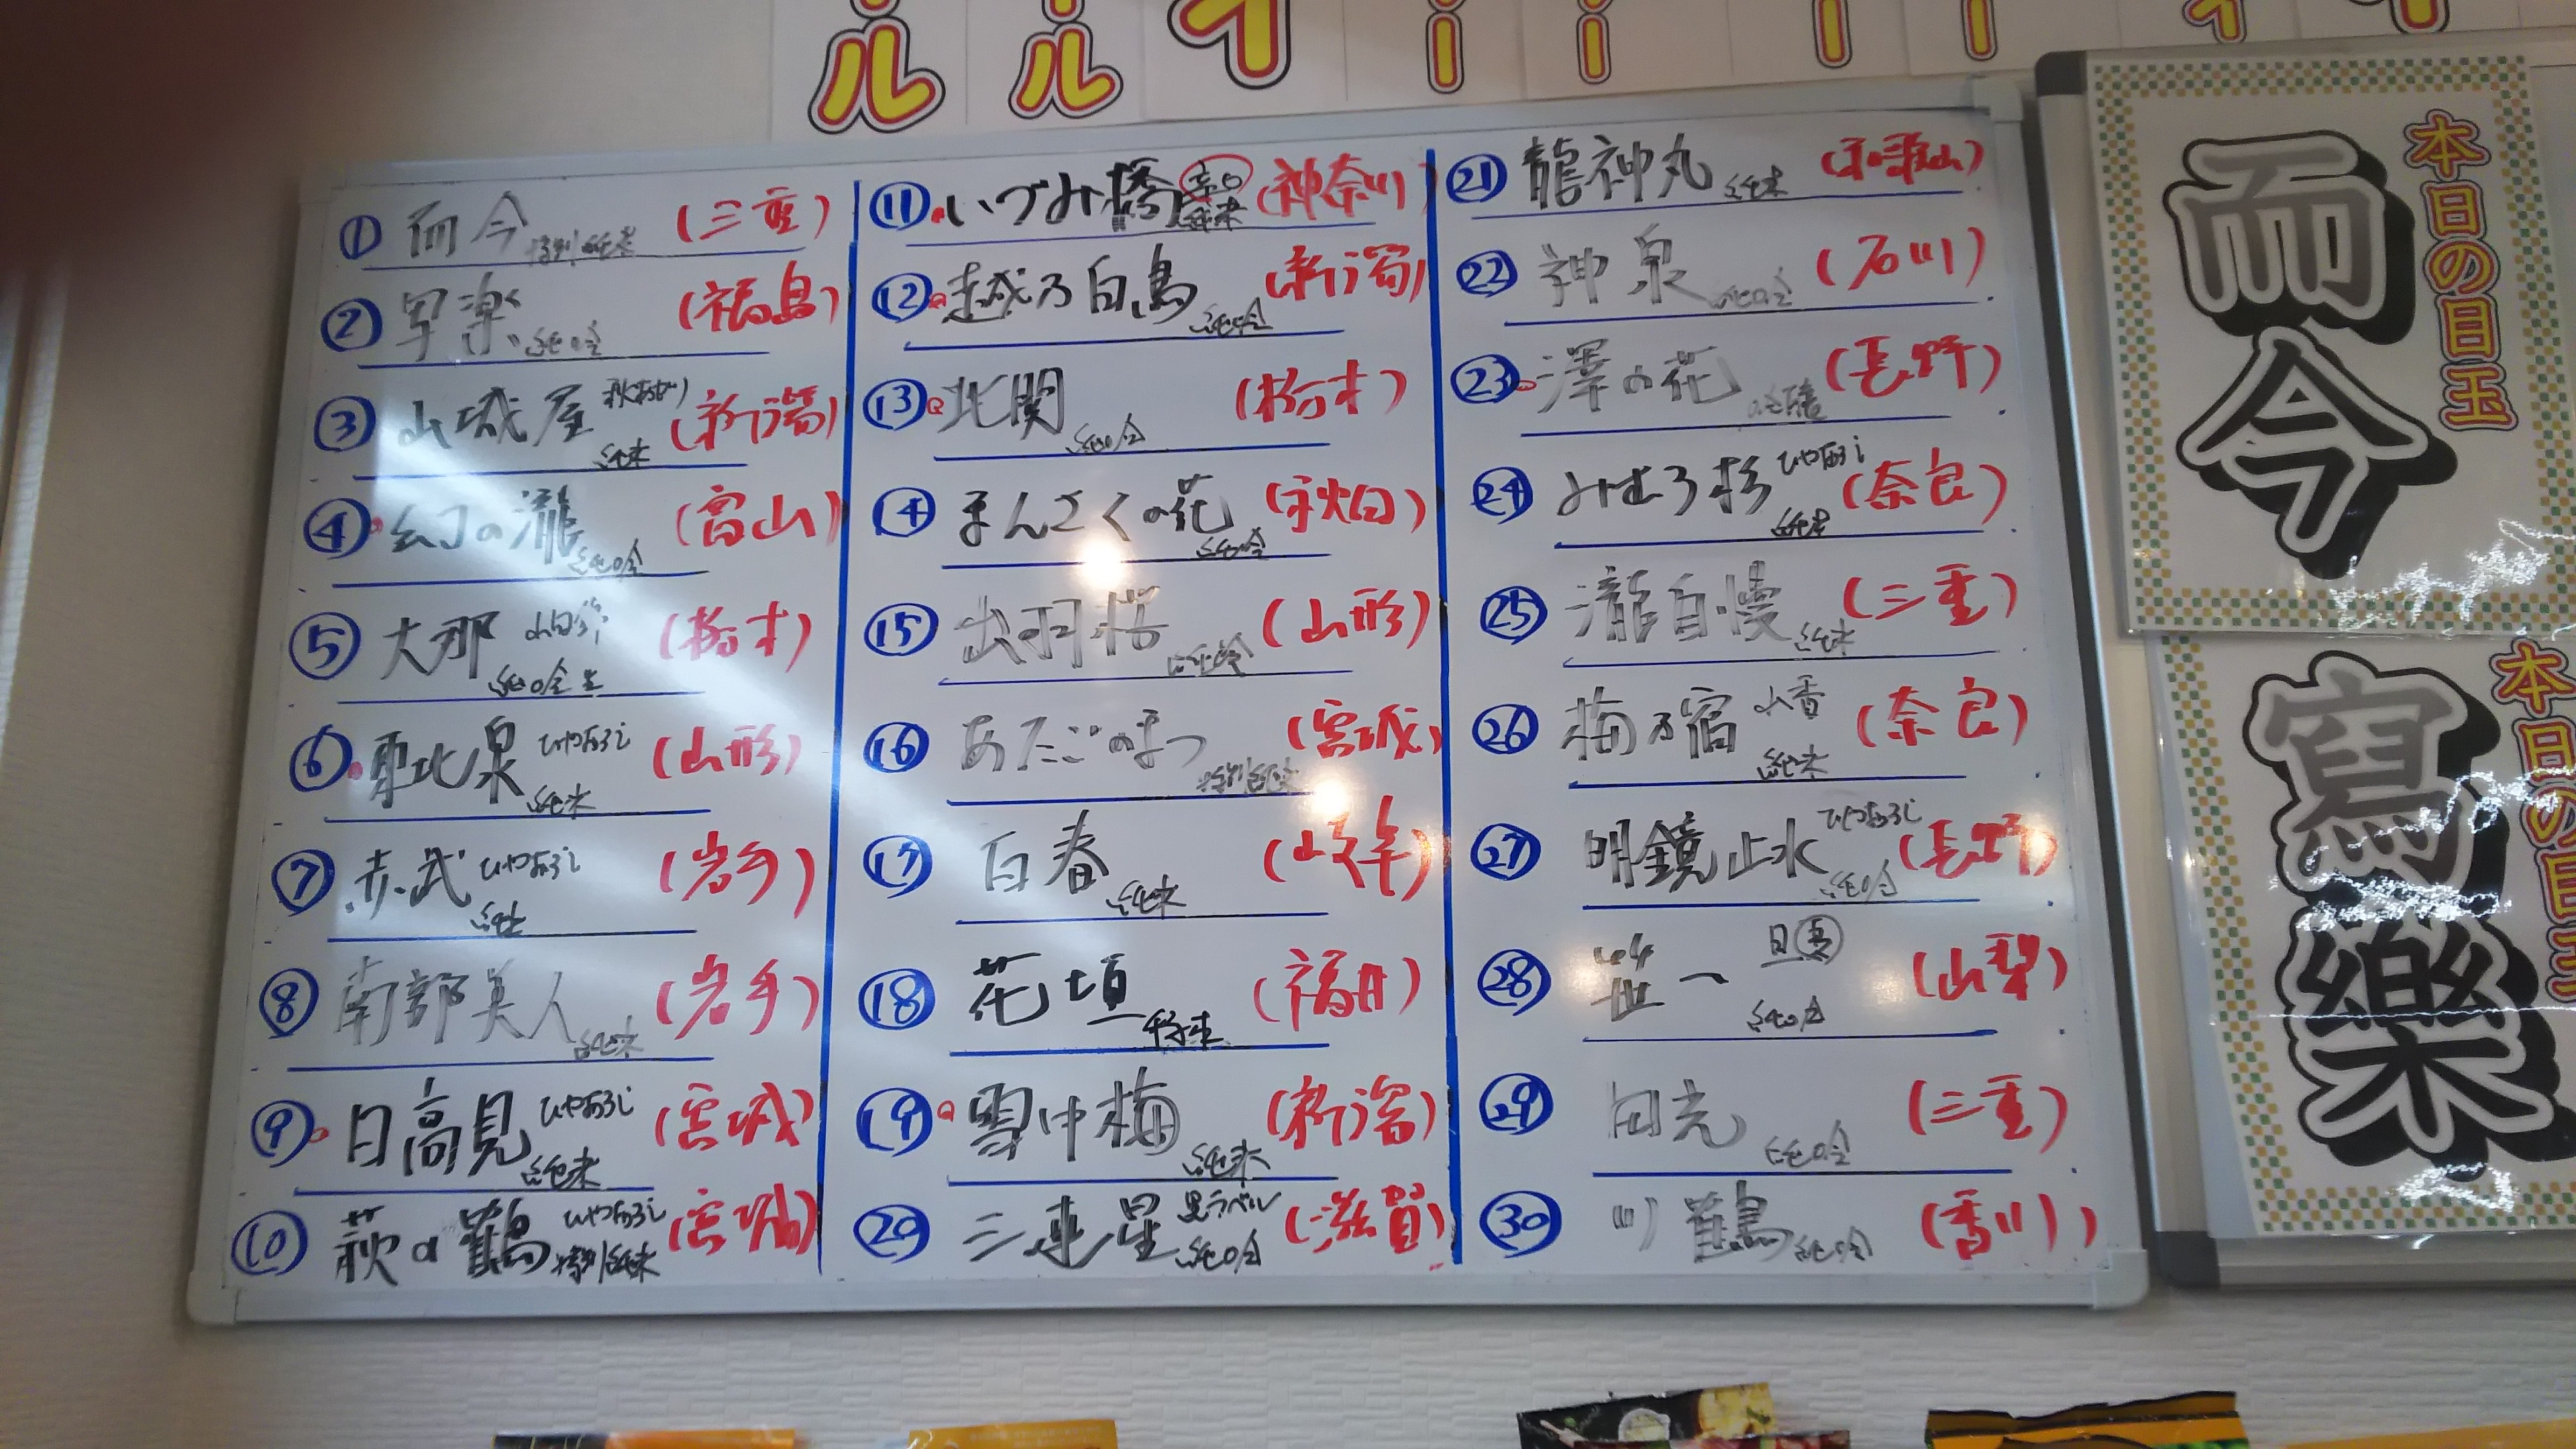 ① 而今 特別純米 (三重)
② 写楽 純吟 (福島)
③ 山城屋 秋あがり 純米 (新潟)
④ 幻の瀧 純吟 (富山)
⑤ 大那 純吟 (栃木)
⑥ 東北泉 ひやおろし 純米 (山形)
⑦ 赤武 ひやおろし 純米 (岩手)
⑧ 南部美人 純米 (岩手)
⑨ 日高見 ひやおろし 純米 (宮城)
⑩ 萩の鶴 ひやおろし 特別純米 (宮城)
⑪ いづみ橋 辛口 純米 (神奈川)
⑫ 越乃白鳥 純吟 (新潟)
⑬ 北関 純吟 (栃木)
⑭ まんさくの花 純吟 (秋田)
⑮ 出羽桜 純吟 (山形)
⑯ あたごのまつ 特別純米 (宮城)
⑰ 百春 純米 (岐阜)
⑱ 花垣 純米 (福井)
⑲ 雪中梅 純米 (新潟)
⑳ 三連星 黒ラベル 純吟 (滋賀)
㉑ 龍神丸 純米 (和歌山)
㉒ 神泉 純吟 (石川)
㉓ 澤の花 (長野)
㉔ みむろ杉 ひやおろし 純米 (奈良)
㉕ 瀧自慢 純米 (三重)
㉖ 梅乃宿 山香 純米 (奈良)
㉗ 明鏡止水 ひやおろし 純吟 (長野)
㉘ 笹一 純吟 (山梨)
㉙ 田光 純吟 (三重)
㉚ 川鶴 純吟 (香川)
本日の目玉
而今
本日の目玉
寫樂